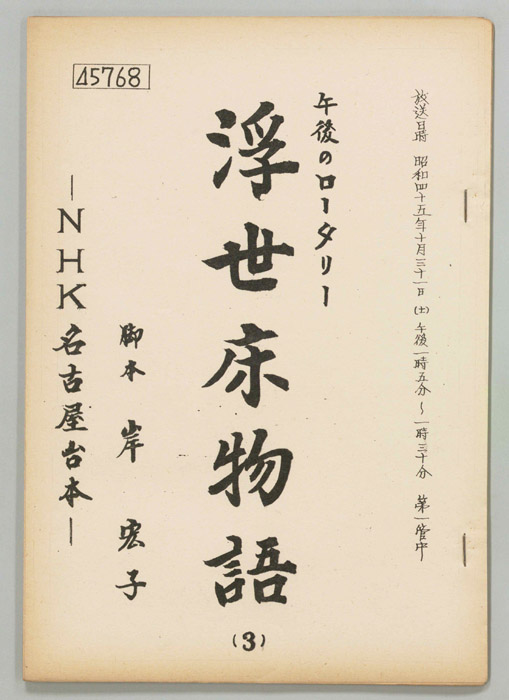 放送日時 昭和四十五年十月三十一日(土)午後一時五分~一時三十分 第一管中
午後のロータリー
浮世床物語
(3)
脚本 岸 宏子
―NHK名古屋台本―
45768